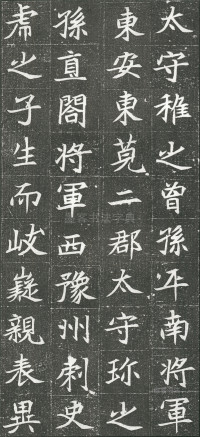 太守稚之曾孫平南將軍
東安東莞二郡太守珎之
孫直閤將軍西豫州刺史
帍之子生而岐嶷親表異